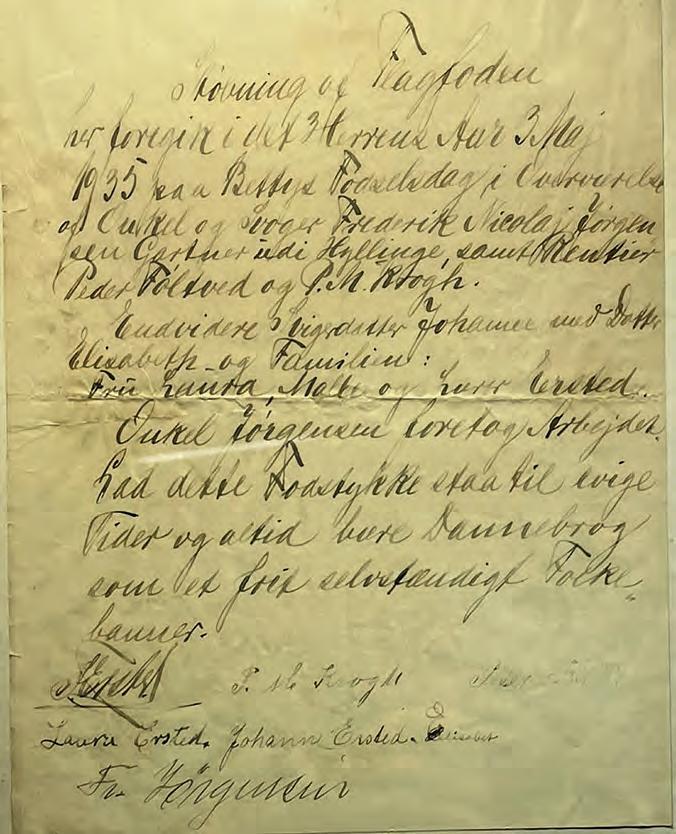 Støbning af Flagfoden
her foregik i det Herrens Aar 3 Maj
1935 paa Bettys Fødselsdag i Overværelse
af Onkel og Svoger Frederik Nicolaj Jørgen
sen Gartner udi Hyllinge, samt Rentier
Peder Føltved og P. M. Krogh.
Endvidere Svigerdatter Johanne med Datter
Elisabeth og Familien:
Fru Laura, Malbe og Lærer Ersted.
Onkel Jørgensen foretog Arbejdet.
Lad dette Fodstykke staa til evige
Tider og altid bære Dannebrog
som et frit selvstændigt Folke„
banner.
P. M. Krogh
Laura Ersted. Johanne Ersted. Elisabet
Fr. Jørgensen